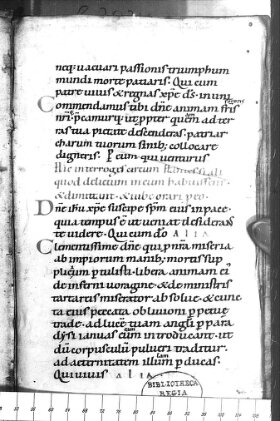 neq; uacuari passionis triumphum
mundi morte patiaris. Qui cum
patre uiuis & regnas xp̄e ds̄. in uni
Commendamus tibi dn̄e animam fr̄is
nr̄i. p̄camurq; ut ppter quem ad ter
ras tua pietate descenderas. patriar
charum tuorum sinib; collocare
digneris. P eum qui uenturus
Hic interroget
quod delictum in eum habuissent.
& dimittant. & iube orari pro
Dn̄e ih̄u xp̄e suscipe sp̄m eius in pace.
quia tempus ē ut ueniat desiderans
te uidere. Qui cum do A L I A
Clementissime dn̄e qui p nr̄a miseria
ab impiorum manib; mortis sup
plicium ptulisti. libera animam ei'
de inferni uoragine & de ministris
tartaris miserator absolue. & cunc
ta eius peccata obliuioni ppetuę
trade. ad lucē tuam angl̄i p para
dysi ianuas cum introducant. ut
dum corpusculū pulueri traditur.
ad aeternitatem illam pducas.
Qui uiuis A L I A
BIBLIOTHECA
REGIA